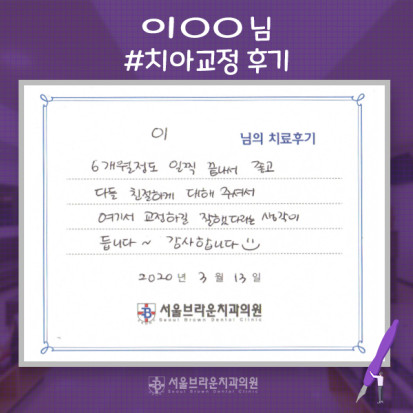 이OO님
#치아교정 후기
이 님의 치료후기
6개월정도 일찍 끝나서 좋고
다들 친절하게 대해 주셔서
여기서 교정하길 잘했다라는 생각이
듭니다~ 감사합니다
2020년 3월 13일
서울브라운치과의원
Seoul Brown Dental Clinic
서울브라운치과의원
Seoul Brown Dental Clinic